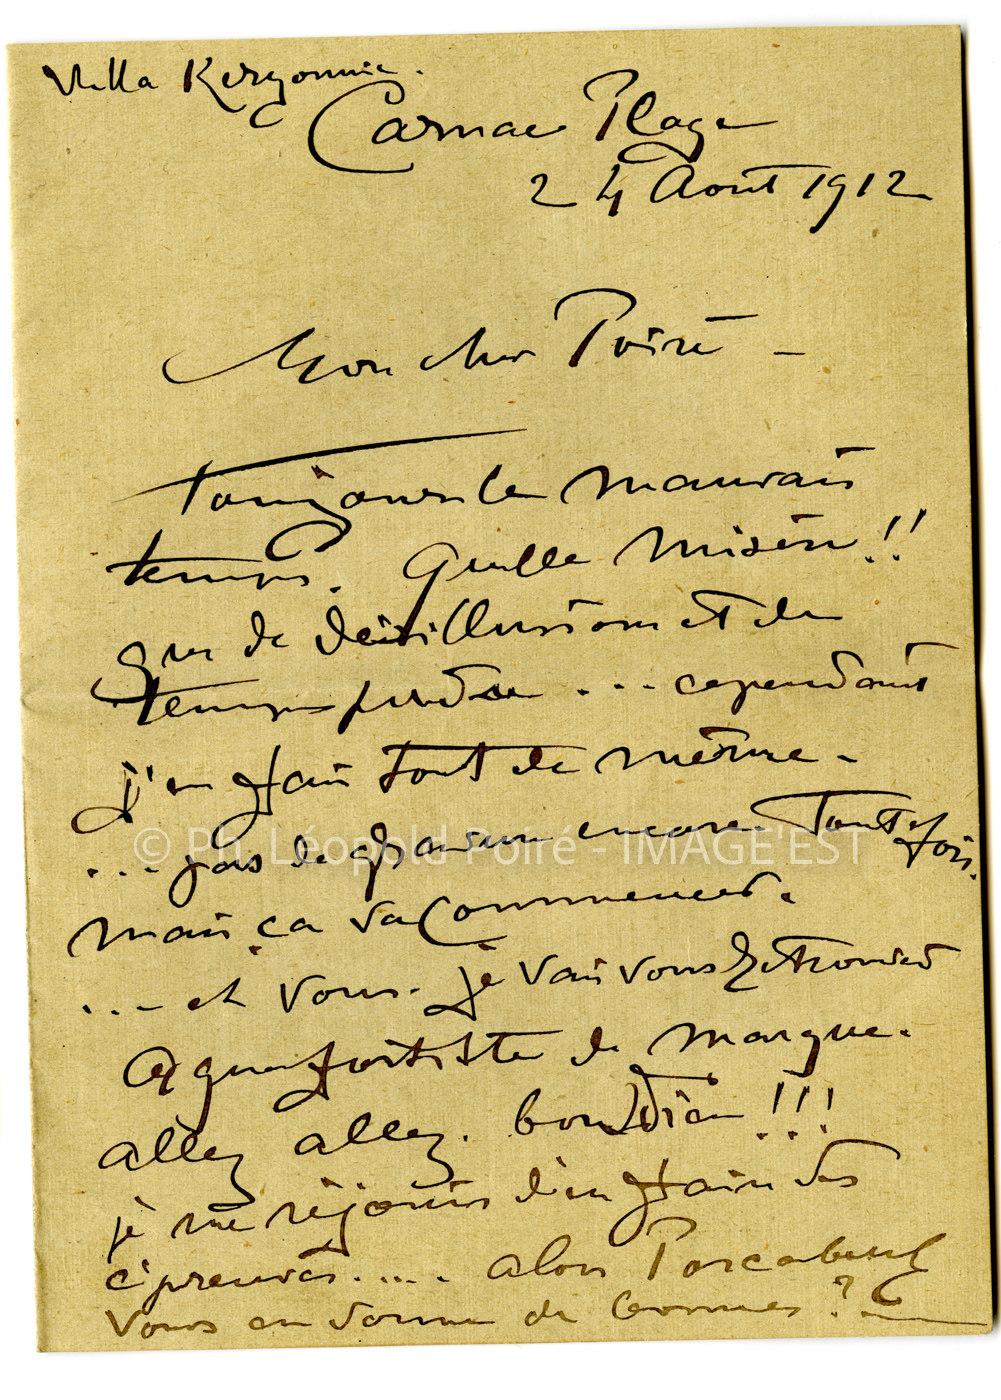 Villa Kergonnic.
Carnac Plage
24 Août 1912
Mon cher Poiré -
Toujours le mauvais
temps. Quelle misère!!
que de désillusions et de
temps perdu ... cependant
j'en fais tout de même.
... pas de gravure encore Toutefois.
mais ça va commencer.
© Ph. Léopold Poiré - IMAGE'EST
... et vous. je vais vous retrouver
aquafortiste de marque.
allez allez. bon Dieu!!!
je me réjouis d'en faire des
épreuves..... alors
vous en donne de bonnes?